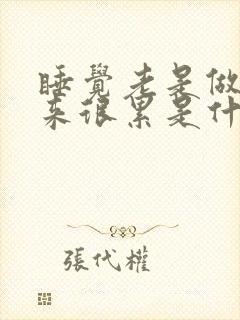 睡覺老是做
來很累是什
張代權